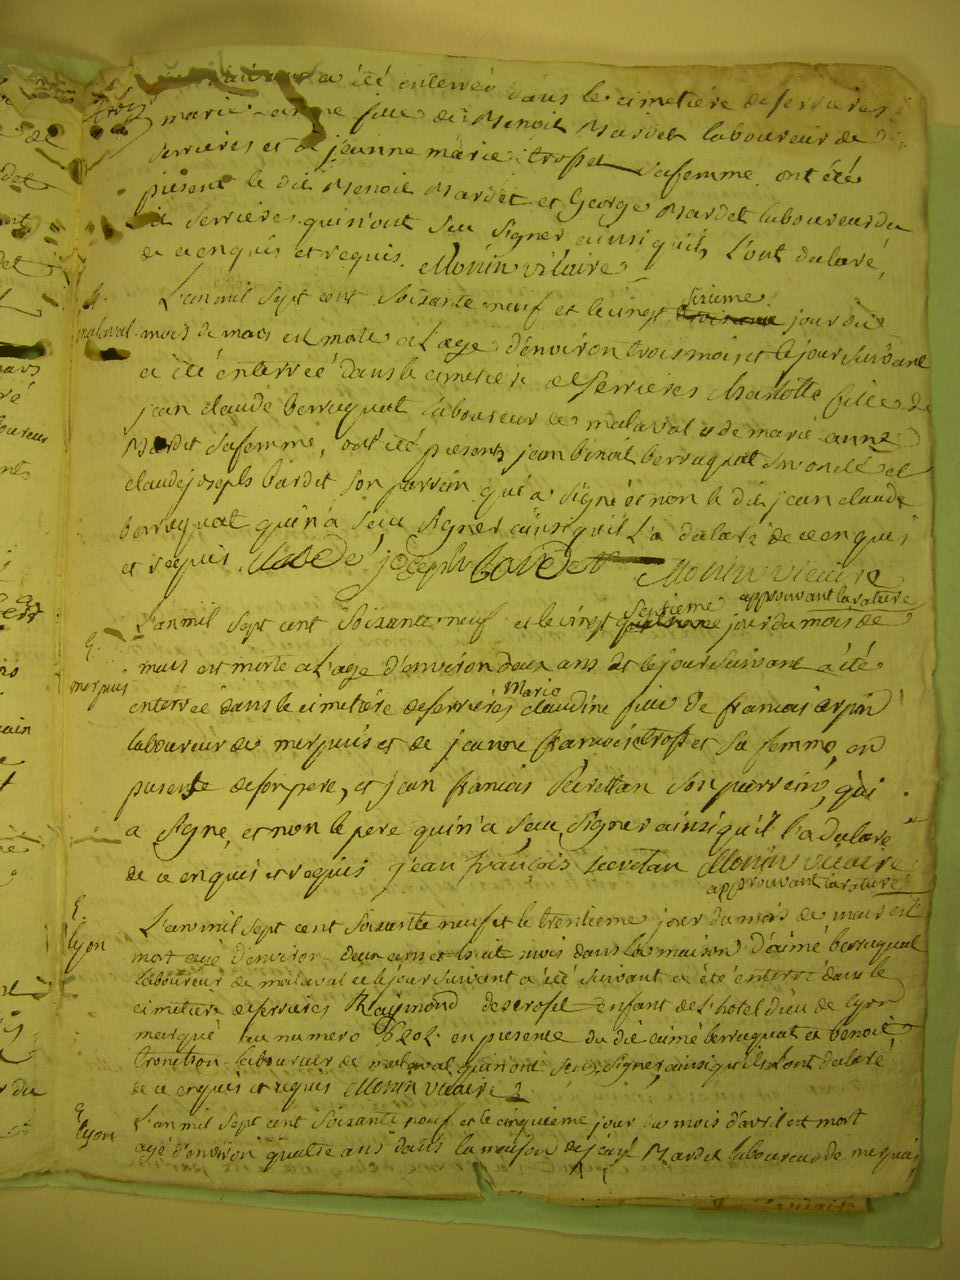 a été enterrée dans le cimetiere de serrieres
marie fille de Benoit Bardet laboureur de
serrieres et de jeanne marie trosset sa femme ont été
présent le dit Benoit Bardet et George Bardet laboureur du
dit serrieres qui n'ont seu signer ainsi quils l'ont declaré,
de ce enquis et requis. Monin vicaire
L'an mil sept cent soixante neuf et le vingt sixieme jour du
malaval
mois de mars est morte a L'age d'environ trois mois et le jour suivant
a été enterreé dans le cimetiere de serrieres charlotte fille de
jean claude berruquat laboureur de malaval et de marie anne
Bardet sa femme, ont été presents jean benoit berruquat son oncle et
claude joseph bardet son parrein qui a signé et non le dit jean claude
berruquat qui n'a seu signer ainsi quil L'a declaré de ce enquis
et requis. Claude joseph bardet Monin vicaire
approuvant la rature
L'an mil sept cent soixante neuf et le vingt septieme jour du mois de
E.
mars est morte a L'age d'environ deux ans et le jour suivant a été
merpuis
enterrée dans le cimetiere de serrieres marie claudine fille de francois arpin
laboureur de merpuis et de jeanne francoise trosset sa femme, en
presence de son pere, et jean francois secrettan son parrein, qui
a signe, et non le pere qui n'a seu signer ainsi qu'il l'a declaré
de ce enquis et requis jean françois secretan Monin vicaire
approuvant la rature
E.
L'an mil sept cent soixante neuf et le trentieme jour du mois de mars est
lyon
mort agé d'environ deux ans et huit mois dans la maison d'aimé berruquat
laboureur de malaval et le jour suivant a été suivant a été enterré dans le
cimetiere de serrieres Raymond descrosil enfant de l'hotel dieu de lyon
marqué au numero en presence du dit aimé berruquat et benoit
tronchon laboureur de malaval qui n'ont seu signer, ainsi qu'ils l'ont declaré
de ce enquis et requis Monin vicaire
E.
L'an mil sept cent soixante neuf et le cinquieme jour du mois d'avril est mort
lyon
agé d'environ quatre ans dans la maison de Bardet laboureur de merpuis